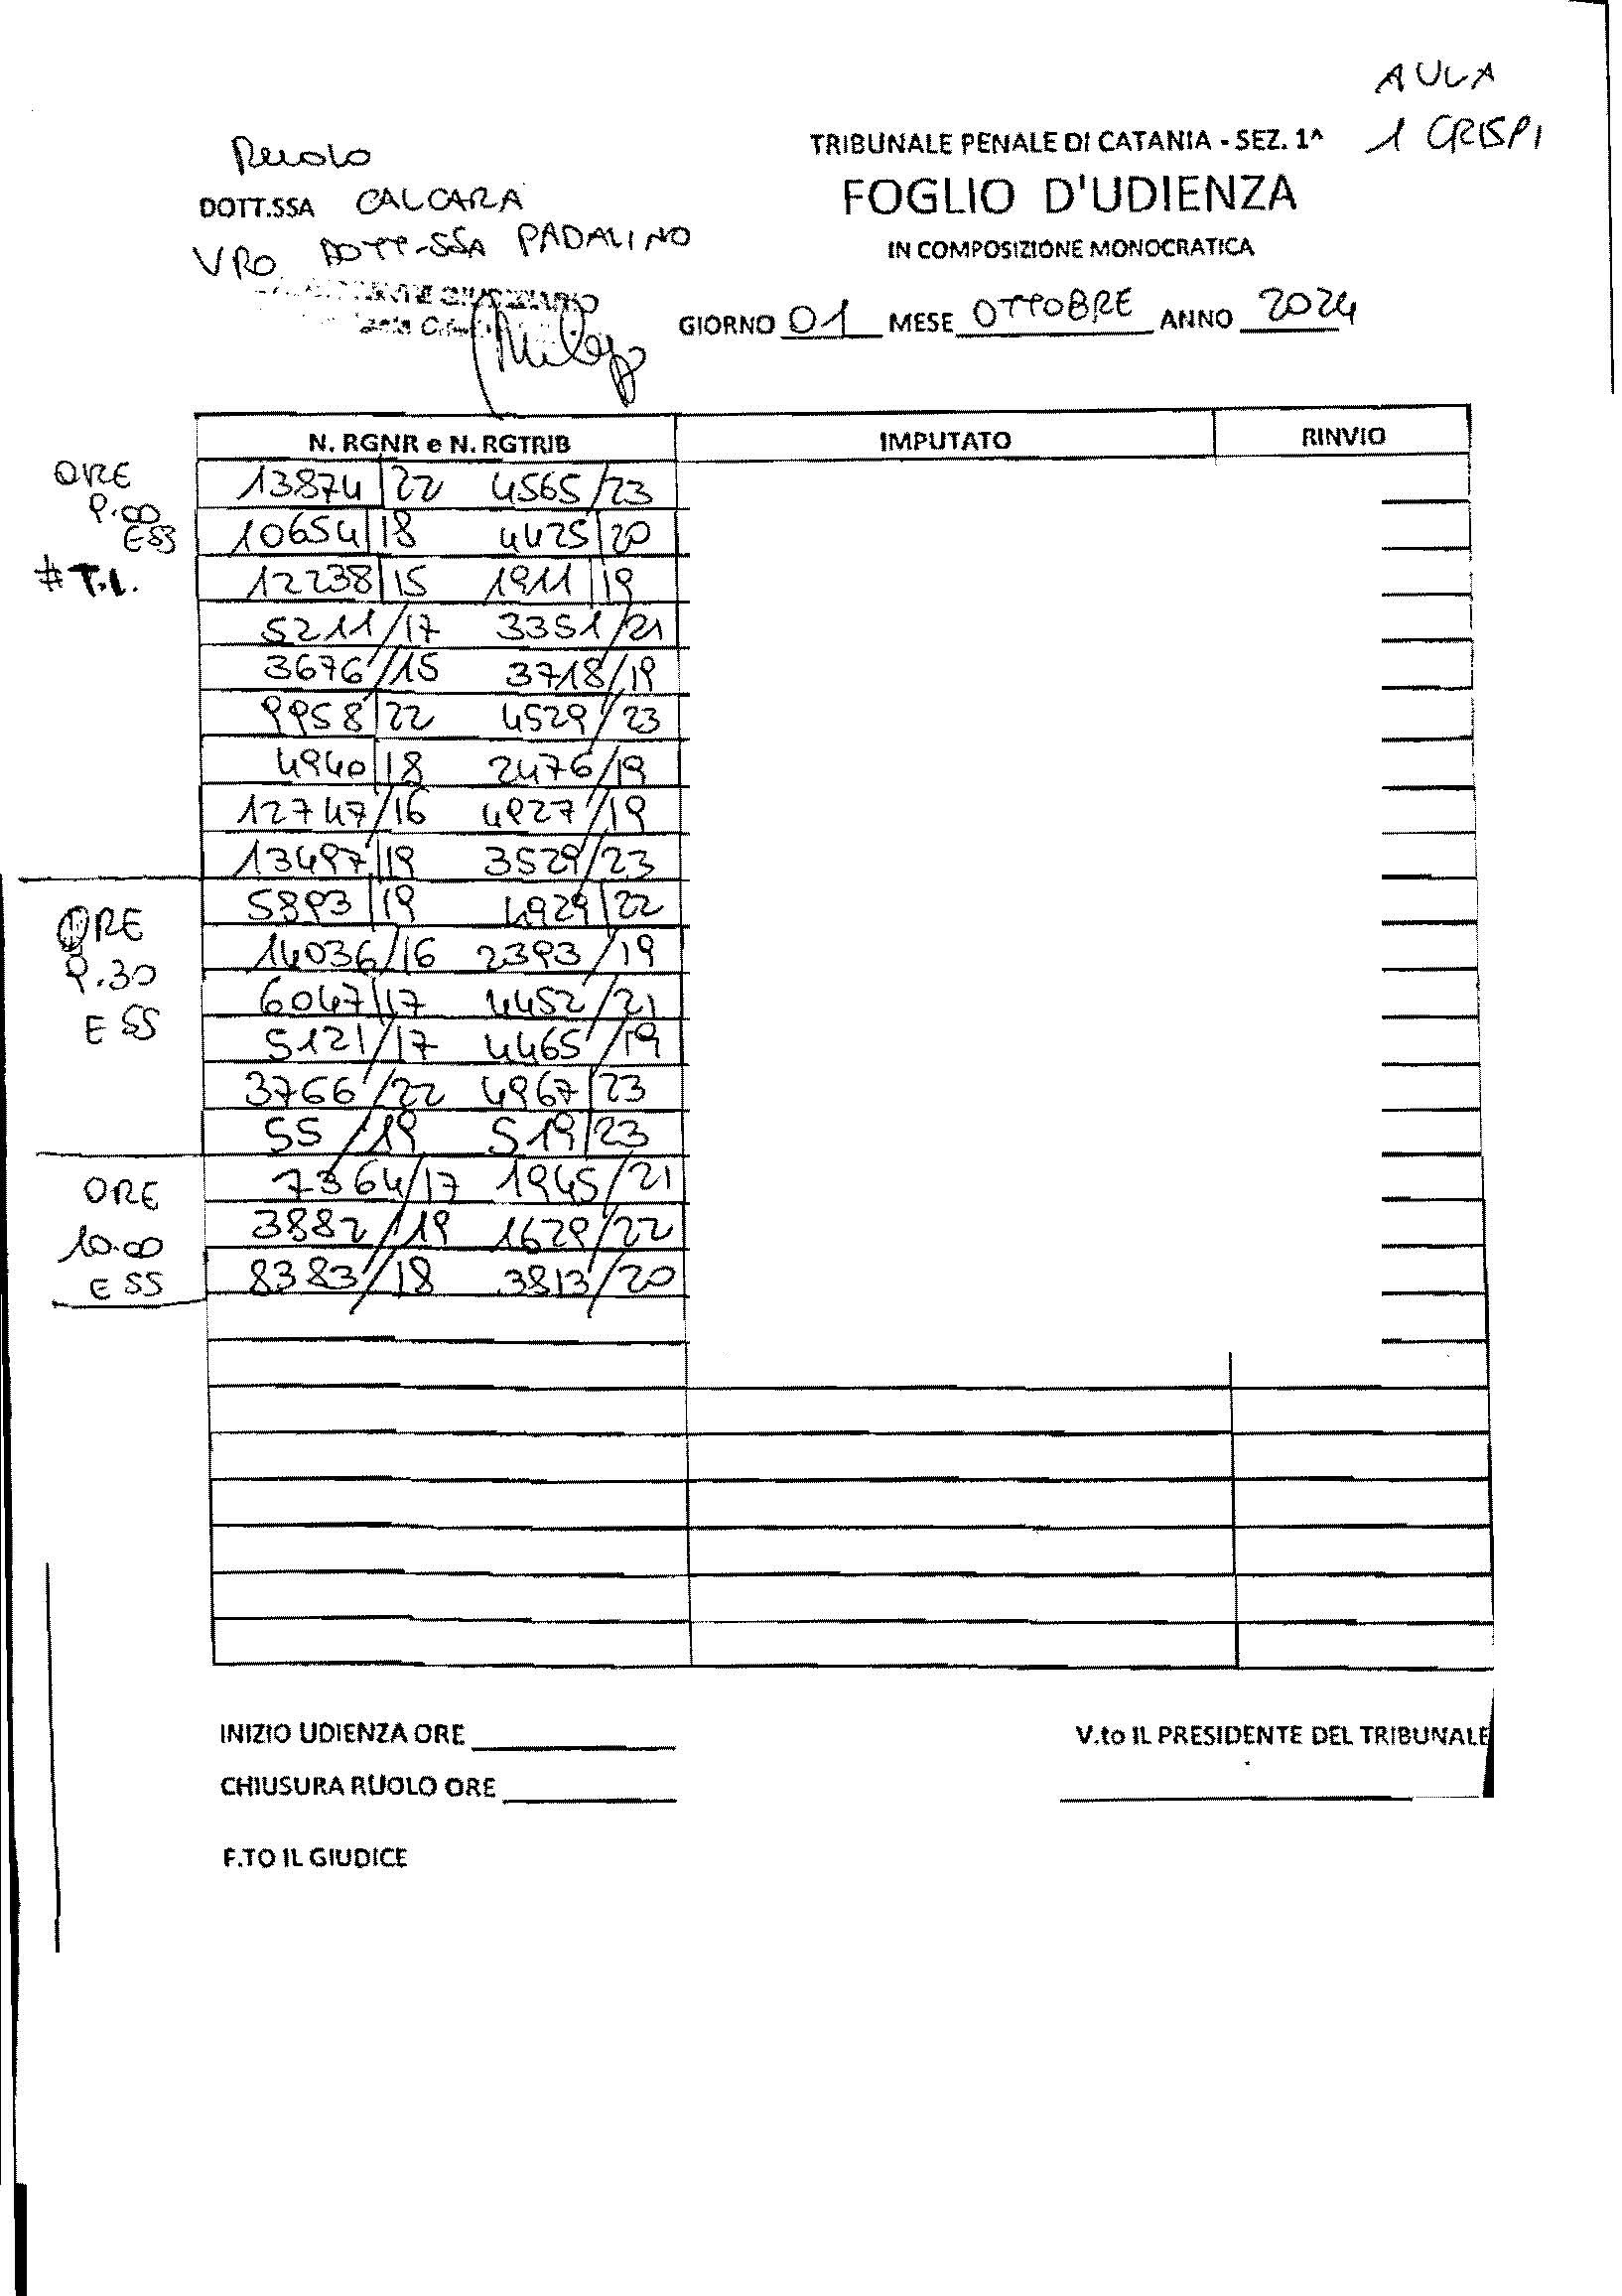 AULA
1 CRISPI
TRIBUNALE PENALE DI CATANIA - SEZ. 1^
FOGLIO D'UDIENZA
IN COMPOSIZIONE MONOCRATICA
Ruolo
DOTT.SSA CALCARA
VPO DOTT-SSA PADALINO
GIORNO 01 MESE OTTOBRE ANNO 2024
N. RGNR e N. RGTRIB IMPUTATO RINVIO
ORE 9.00 ESS
13874/22 4565/23
10654/18 4425/20
# T.I. 12238/15 1911/19
5211/17 3351/21
3676/15 3718/19
9958/22 4529/23
4940/18 2476/19
12747/16 4927/19
13497/19 3529/23
ORE 9.30 ESS
5893/19 4929/22
14036/16 2393/19
6047/17 4452/21
5121/17 4465/19
3766/22 4967/23
55/19 519/23
ORE 10.00 ESS
7364/17 1945/21
3882/19 1629/22
8383/18 3813/20
INIZIO UDIENZA ORE
V.to IL PRESIDENTE DEL TRIBUNALE
CHIUSURA RUOLO ORE
F.TO IL GIUDICE